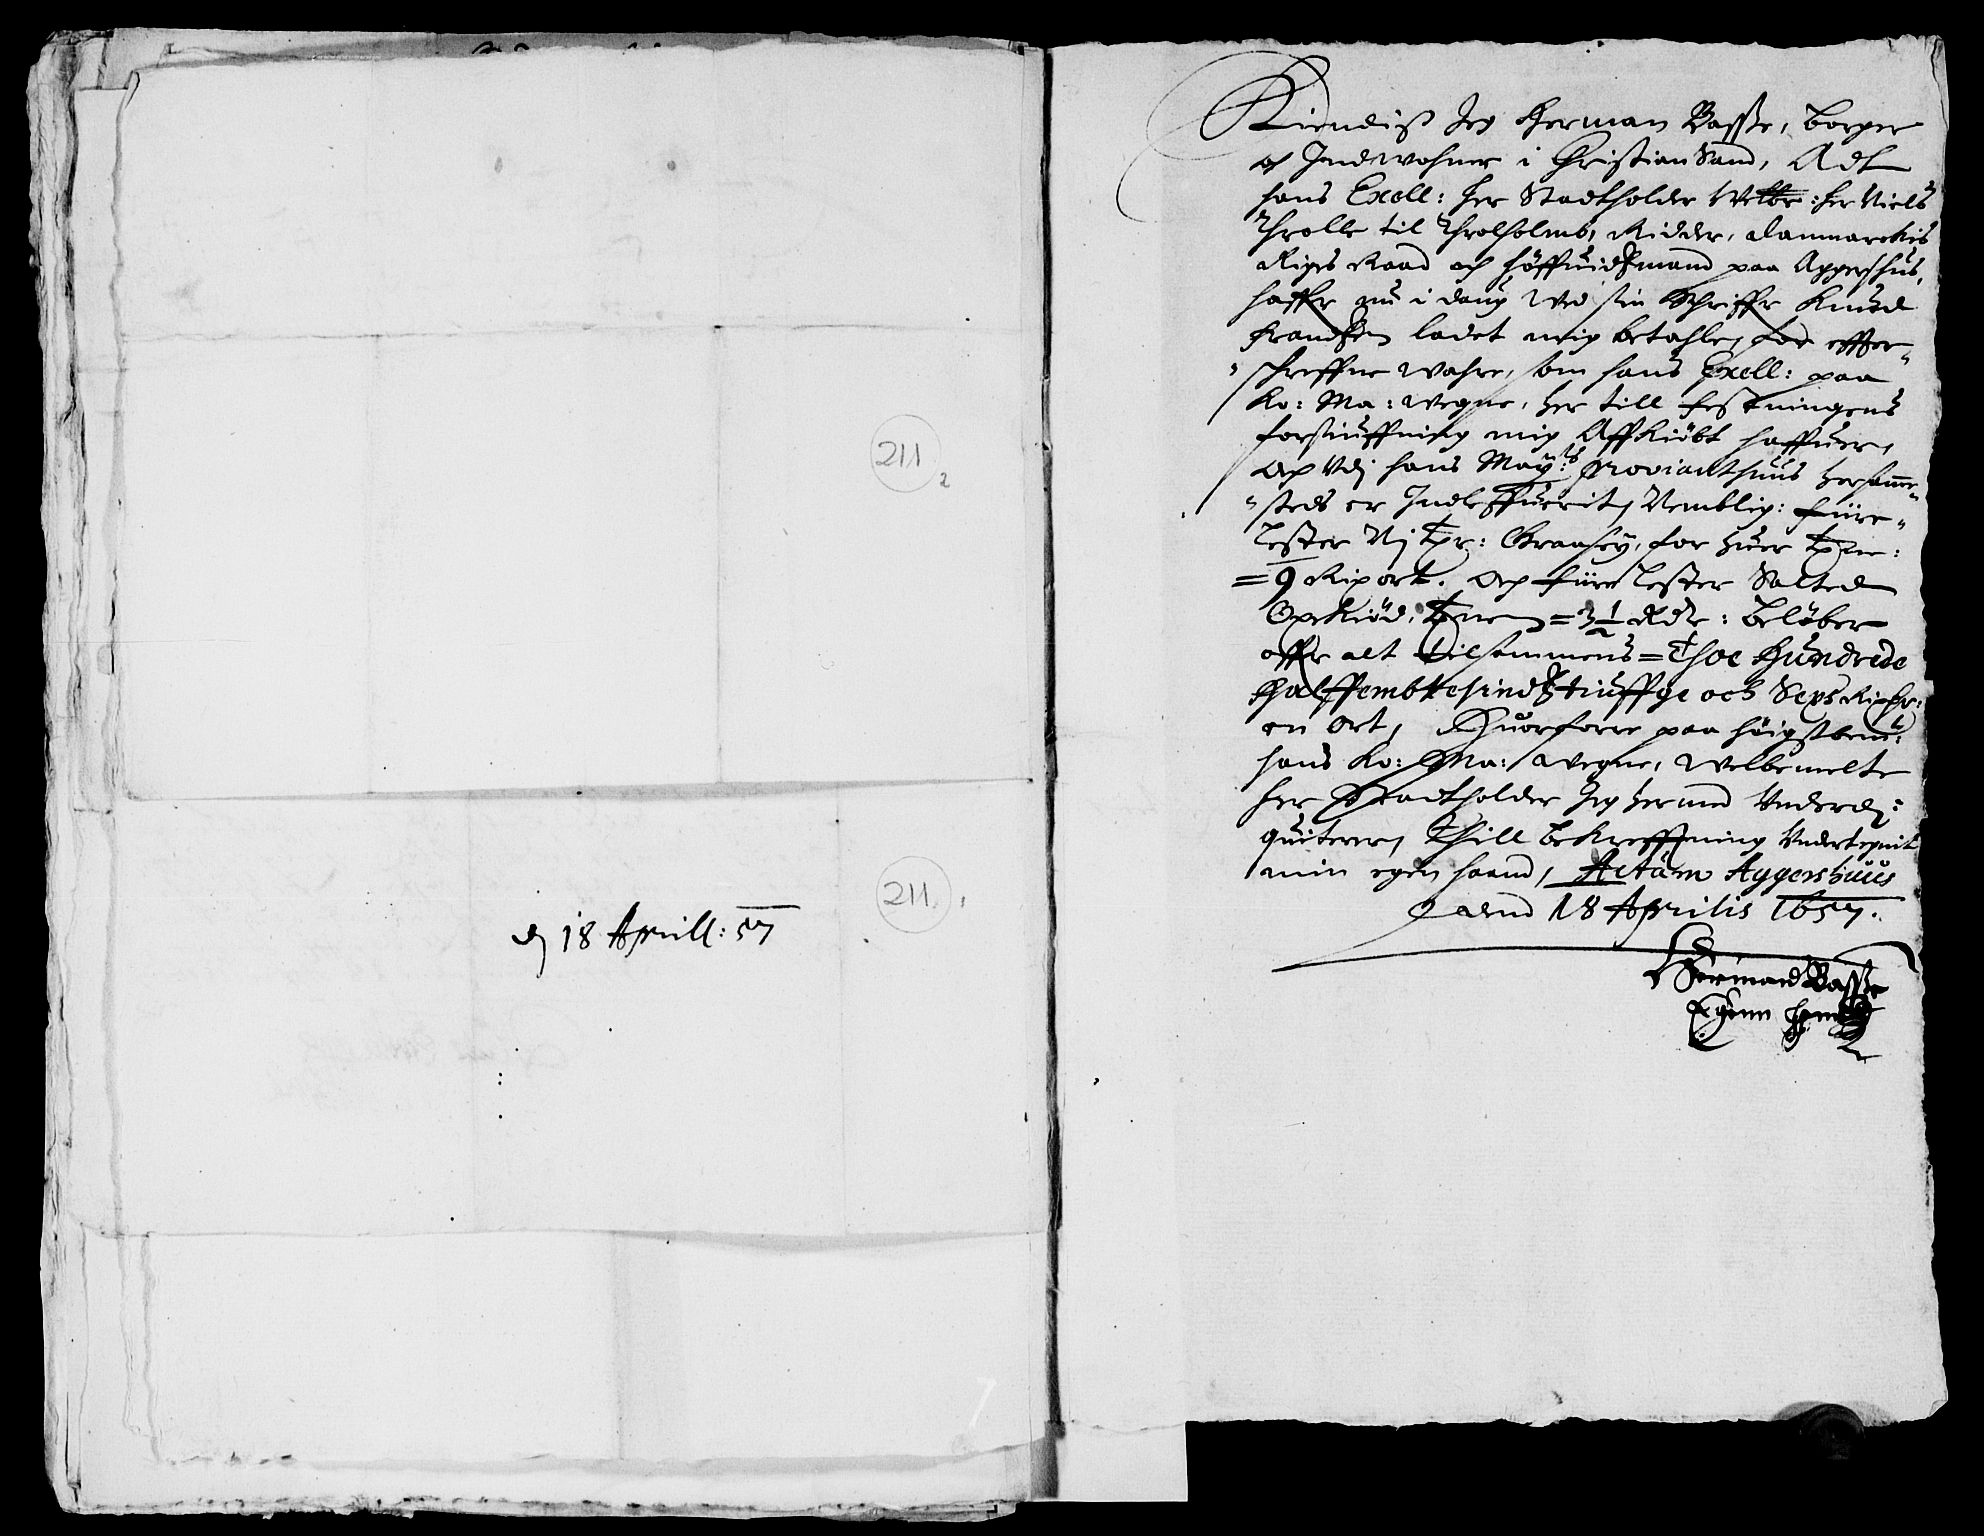 211
2
211.
1
d 18 Aprill: 57
Kiendis Jeg Herman Basse, borger
och Indewohner i Christian Sand, Adt
hans Excell: Her Stadtholder Welbr: Her Niels
Throlle til Throlholmb, Ridder, Danmarckis
Rigis Raad och Höffuidtzmand paa Aggershus,
haffr nu i daug Wed sin Schriffr Knud
Frandtzen ladet mig betahle, for effter-
-schreffne Wahre, som hans Excell: paa
Ko: Ma: Wegne, her till festningens
forstiuffning mig Affkiöbt haffuer,
och Vdj hans May:ts Provianthuus hersamme-
-steds er Indleffuerit, Nemblig: fiire
Lester Vj tr: Graasey, for huer tne:
= 9 Rix ort. Och fiire Lester Salted
Oxekiöd, tnen = 3½ Rdr: beløber
offr alt tilsammens = Thoe Hundrede
Halffembtesindtztiuffge och Sexs Rixdr:
en Ort, Huorforre paa höigstbem:te
hans Ko: Ma: Wegne, Welbemelte
Her Stadtholder Jeg hermed Vnderd:
quiterer, Thill bekreffning Vndertegnit
min egen haand, Actum Aggershuus
dend 18 Aprilis 1657.
Herman Basse
Egenn Hand